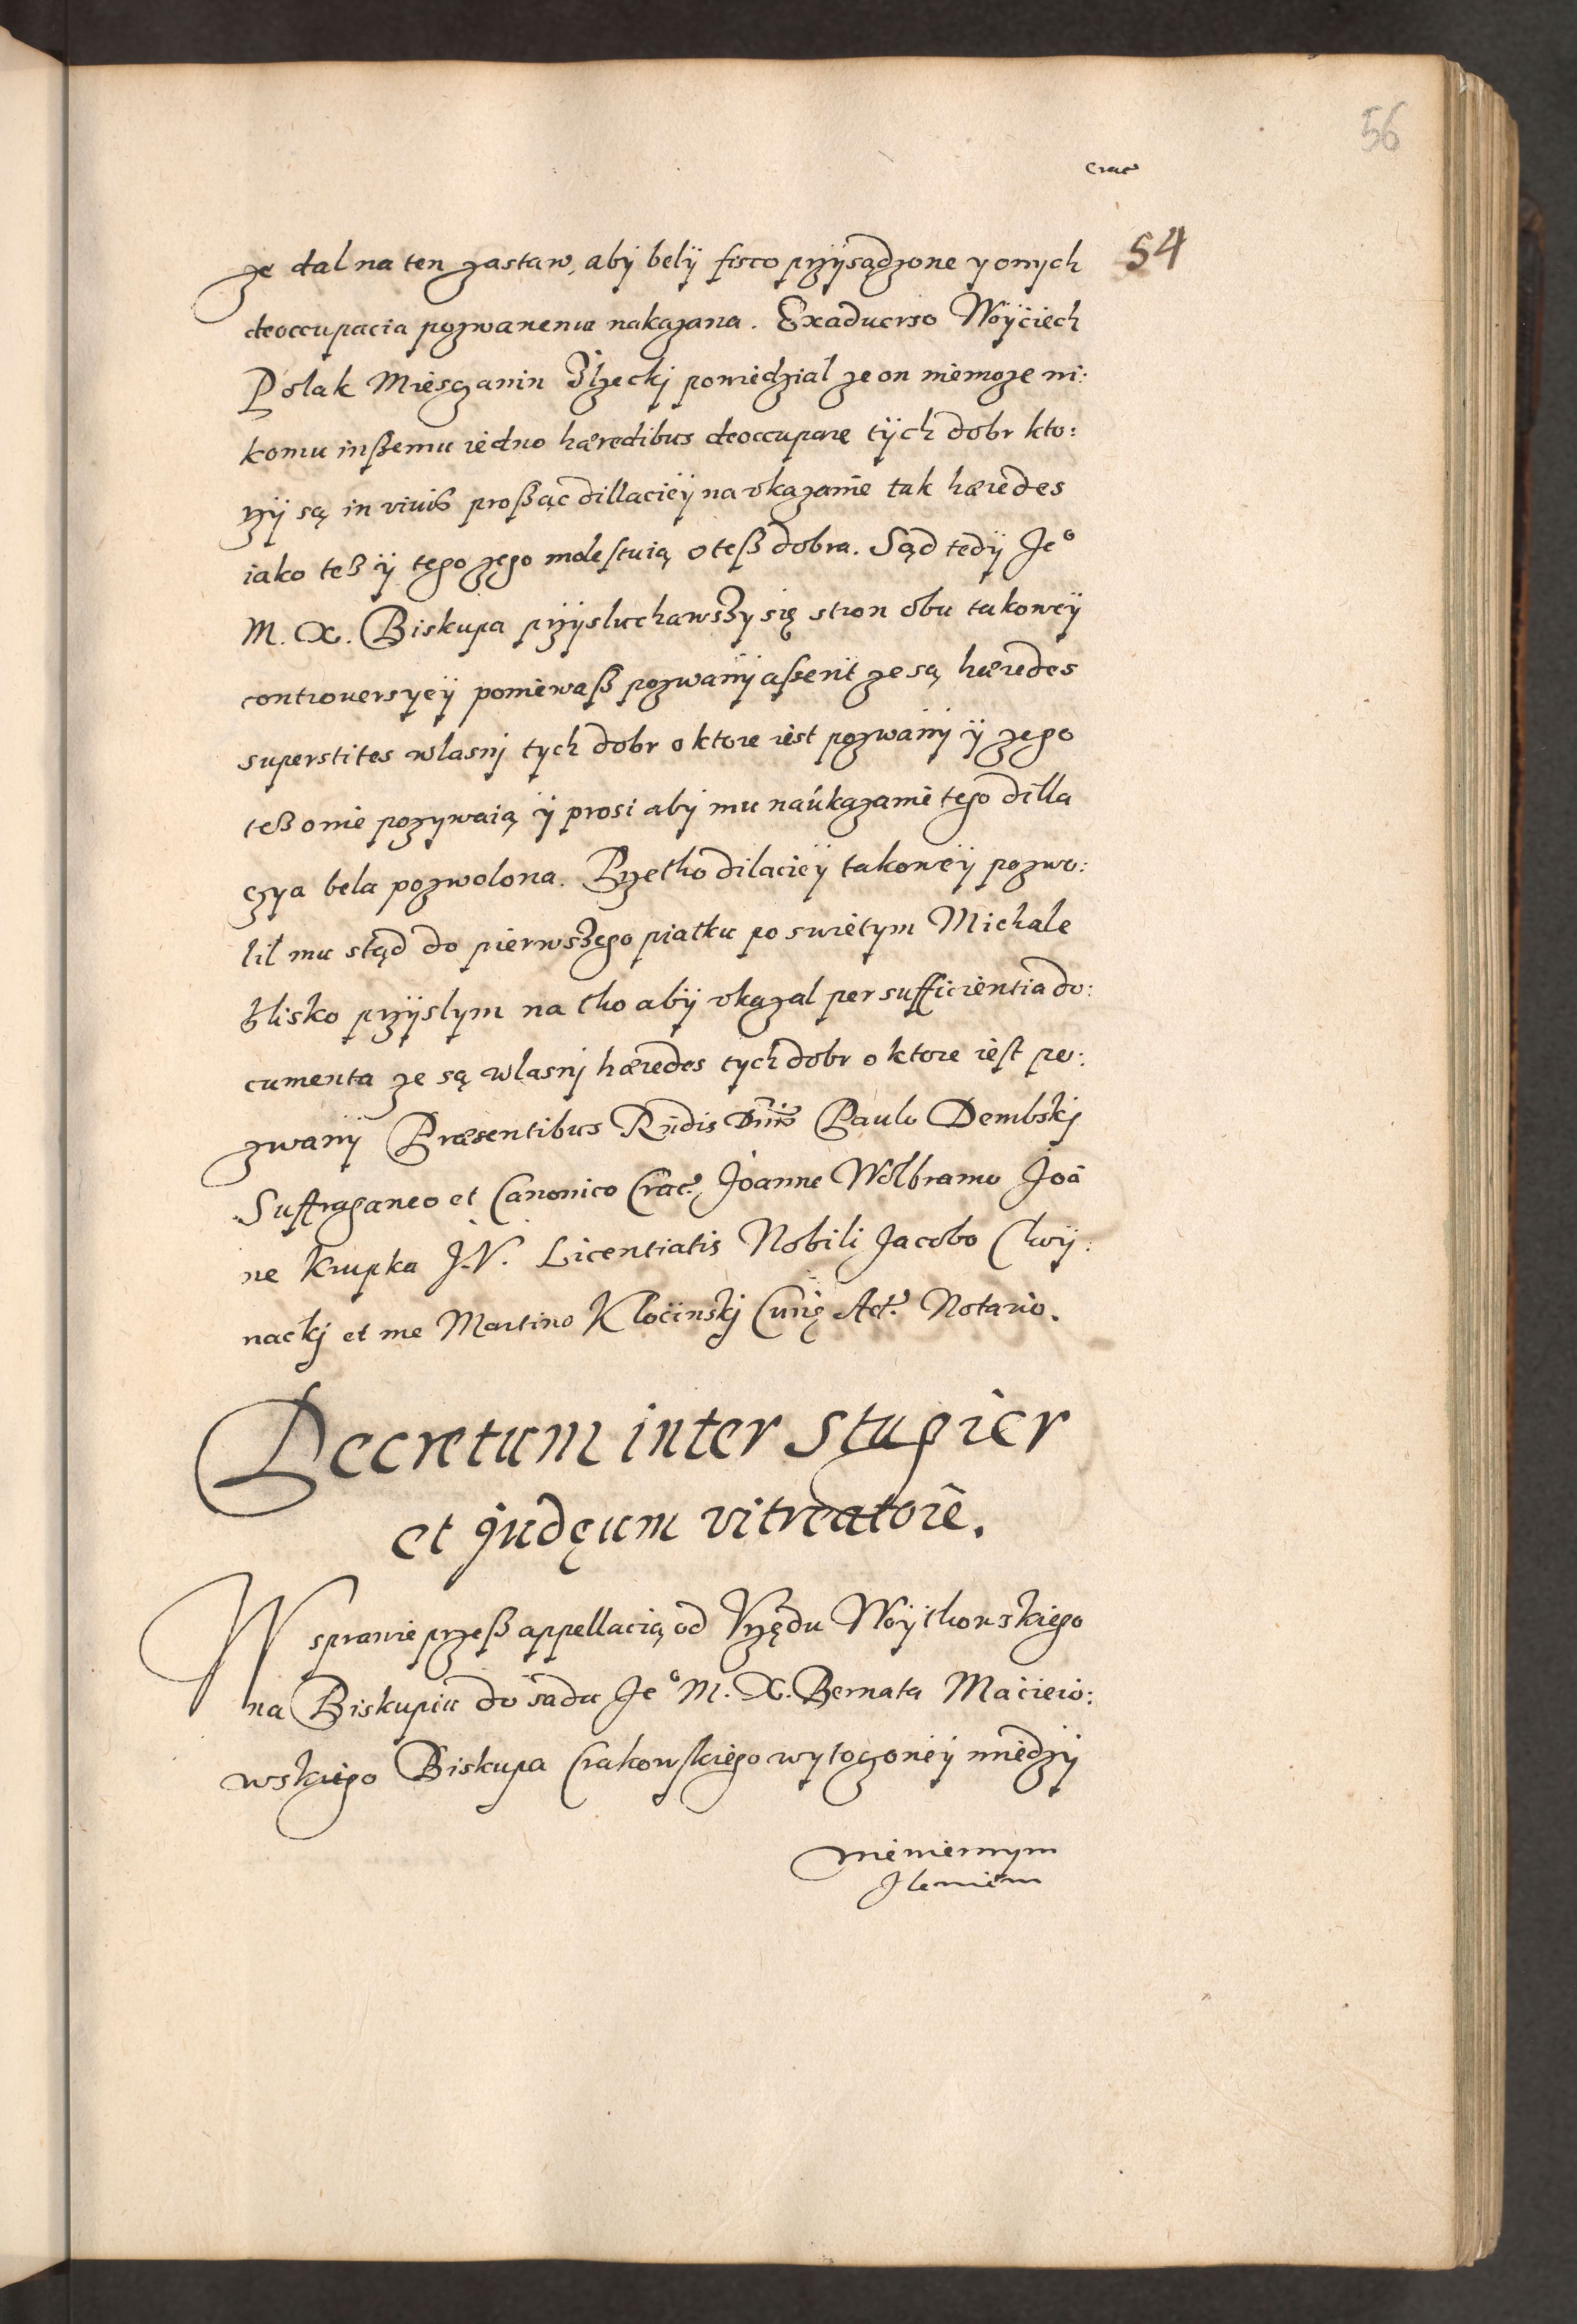 56
Crac̃
54
ze dal na ten zastaw, abÿ belÿ fisco przÿsądzone y onych
deoccupacia pozwanemu nakazana. Exaduerso Woÿciech
Polak Miesczanin Ilzeckj powiedzial ze on niemoze ni:
komu inßemu iedno hæredibus deoccupare tÿch dobr kto:
rzÿ są in viuis proßąc dillaciëÿ na vkazanie tak hæredes
iako teß ÿ tego zego molestuią o teß dobra. Sąd tedÿ Jeᵒ
M. X. Biskupa przÿsluchawszy się stron obu takoweÿ
controuersyeÿ poniewaß pozwanÿ asserit ze są hæredes
superstites wlasnj tych dobr o ktore iest pozwanÿ ÿ zego
teß o nie pozywaią ÿ prosi abÿ mu na ukazanie tego dilla
czya bela pozwolona. Przetho dilaciëÿ takoweÿ pozwo:
lil mu stąd do pierwszego piatku po swiętym Michale
blisko przÿslym na tho abÿ vkazal per sufficientia do:
cumenta ze są wlasnj hæredes tych dobr o ktore iest po:
zwanÿ Præsentibus Rñdis Dñis Paulo Dembskj
Suffraganeo et Canonico Crac̃. Joanne Wolbramo Joã
ne Krupka J.V. Licentiatis Nobili Jacobo Chwÿ:
nackj et me Martino Klocinskj Curię Act̃. Notario.
Decretum inter Stupier
et judęum vitreatorē.
W sprawie przeß appellacią od Vrzędu Woÿthowskiego
na Biskupiu do sadu Jeᵒ M. X. Bernata Macieio:
wskiego Biskupa Crakowskiego wytoczoneÿ miedzÿ
niewiernym